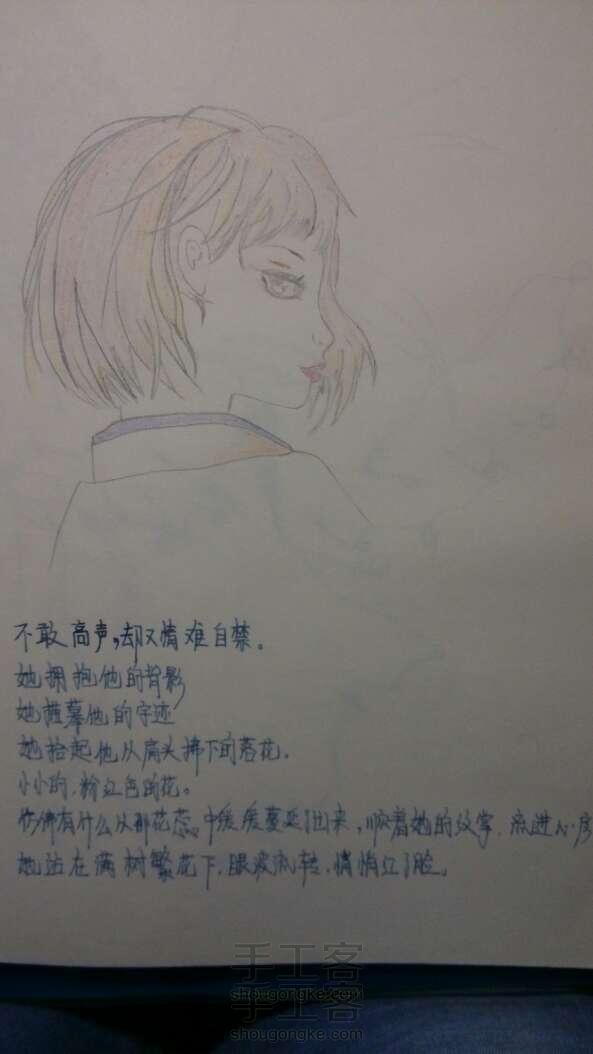 不敢高声,却又情难自禁。
她拥抱他的背影
她描摹他的字迹
她拾起他从肩头拂下的落花.
小小的.粉红色的花。
仿佛有什么从那花蕊中缓缓蔓延了出来,顺着她的纹掌.流进心房
她站在满树繁花下.眼波流转.悄悄红了脸。
手工客
shougongke.com
手工客
shougongke.com